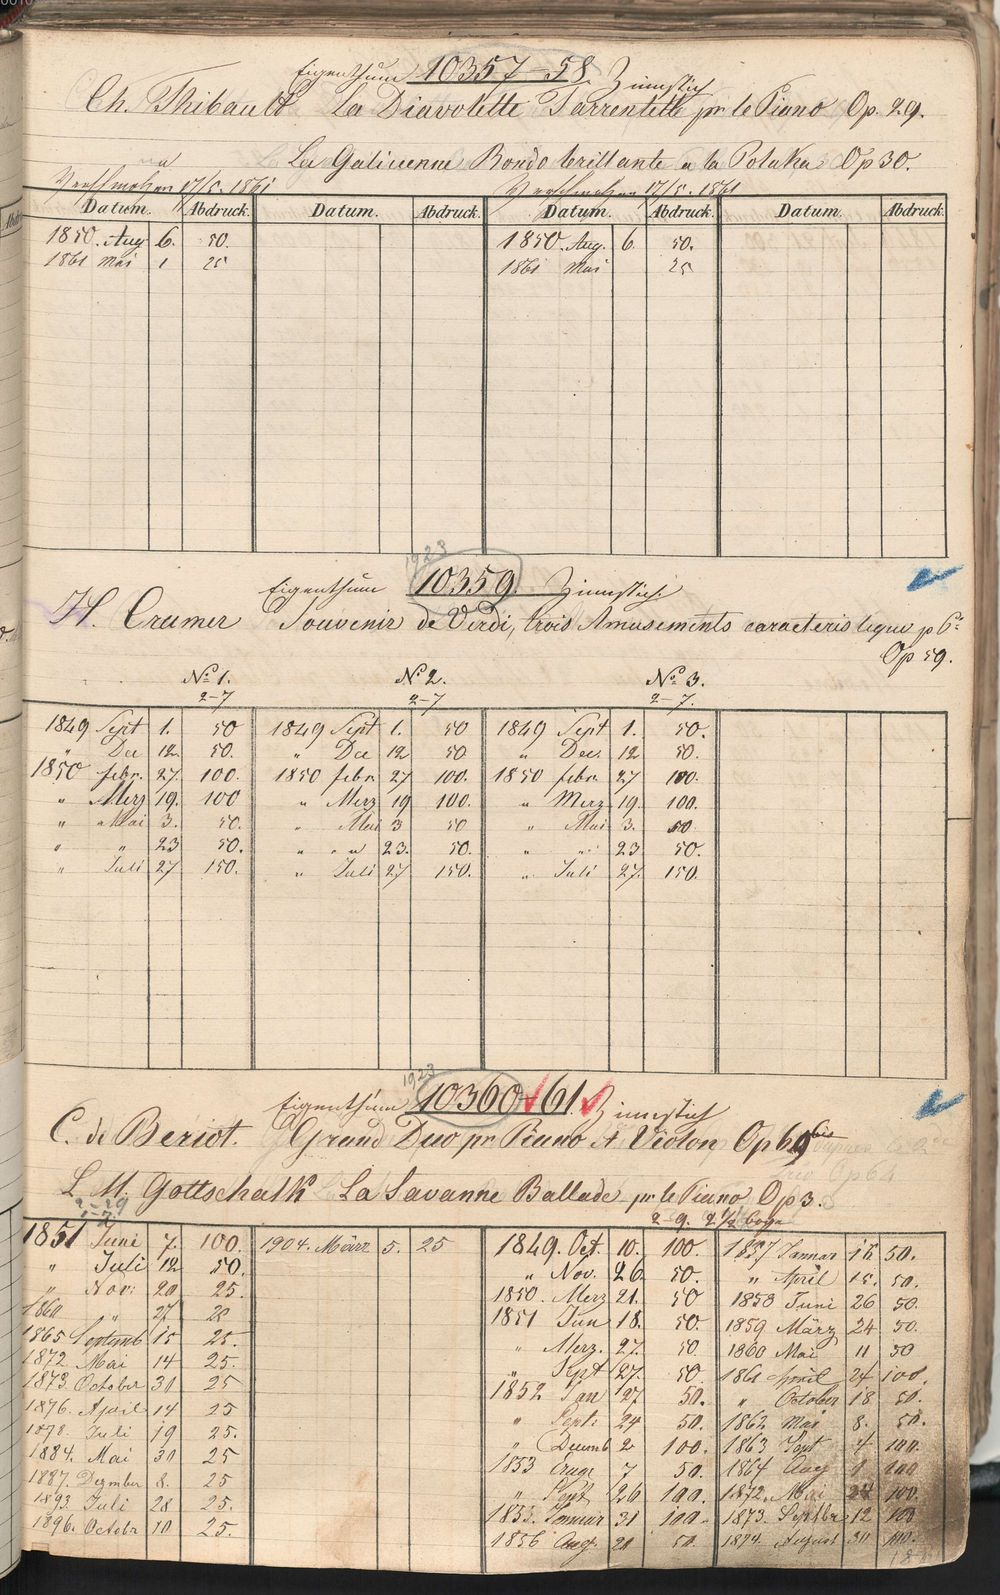 Eigenthum 10357-58. Zinnstich
Ch. Thibault La Diavolette Tarrentelle pr le Piano Op. 29.
La Galicienne Rondo brillante a la Polaka Op 30.
Verschmolzen 17/5. 1861 Verschmolzen 17/5. 1861
Datum. Abdruck. Datum. Abdruck. Datum. Abdruck. Datum. Abdruck.
1850. Aug 6. 50. 1850. Aug. 6 50.
1861 Mai 1 25 1861 Mai 25
1923
Eigenthum 10359. Zinnstich.
H. Cramer Souvenir de Verdi, trois Amusements caracteristique p Pº
Op 59.
Nº 1. Nº 2. Nº 3.
2-7 2-7 2-7.
1849 Sept 1. 50 1849 Sept 1. 50 1849 Sept 1. 50.
" Dec 12 50. " Dec 12 50 " Dec. 12 50.
1850 febr. 27. 100. 1850 febr 27 100. 1850 febr. 27 100.
" Merz 19. 100 " Merz 19 100. " Merz 19. 100.
" Mai 3. 50. " Mai 3 50 " Mai 3. 50
" " 23 50. " " 23. 50. " " 23 50.
" Juli 27 150. " Juli 27 150. " Juli 27. 150.
1923
Eigenthum 10360+61. Zinnstich
C. de Beriot. Grand Duo pr Piano et Violon Op 69 bis
L. M. Gottschalk La Savanne Ballade pr le Piano Op 3.
2-29
1-7. 2 9. 2 1/2 bogn
1851 Juni 7. 100. 1904. März 5. 25 1849. Oct. 10. 100. 1857 Januar 15 50.
" Juli 12 50. " Nov. 26 50. " April 15. 50.
" Nov. 20 25. 1850. Merz 21. 50 1858 Juni 26 50.
1860 " 27 20 1851 Jun 18. 50. 1859 März 24 50.
1865 Septemb 15 25. " Merz. 27. 50. 1860 Mai 11 50
1872 Mai 14 25. " Sept 27. 50. 1861 April 24 100.
1873. October 31 25 1852 Jan 27 50. " October 18 50.
1876. April 14 25 " Sept. 24 50. 1862 Mai 8. 50.
1878. Juli 19 25. " Decemb 2 100. 1863 Sept 4 100.
1884. Mai 30 25 1853 7 50. 1864 Aug 9 100
1887. Dezmber 8. 25 " Sept 26 100. 1872. Mai 24 100.
1893. Juli 28 25. 1855. Januar 31 100. 1873. Septbr 12 100
1896. Octobr 10 25. 1856 Aug. 20 50. 1874. August 30 100.